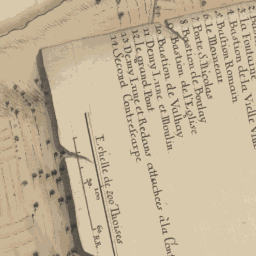 2 Ba
3 la Fontaine
4 Bastion de la Vielle Vil
5 Bastion Romain
6 le Monceau
7 Porte S. Nicolas
8 Bastion de Boulay
9 Bastion de l'Eglise
10 Bastion de Valhay
11 Demy Lune et Moulin
12 le grand Pont
13 Demy Lune et Redans attachees à la Cont
14 Second Contrescarpe
Echelle de 200 Thoises
50 100